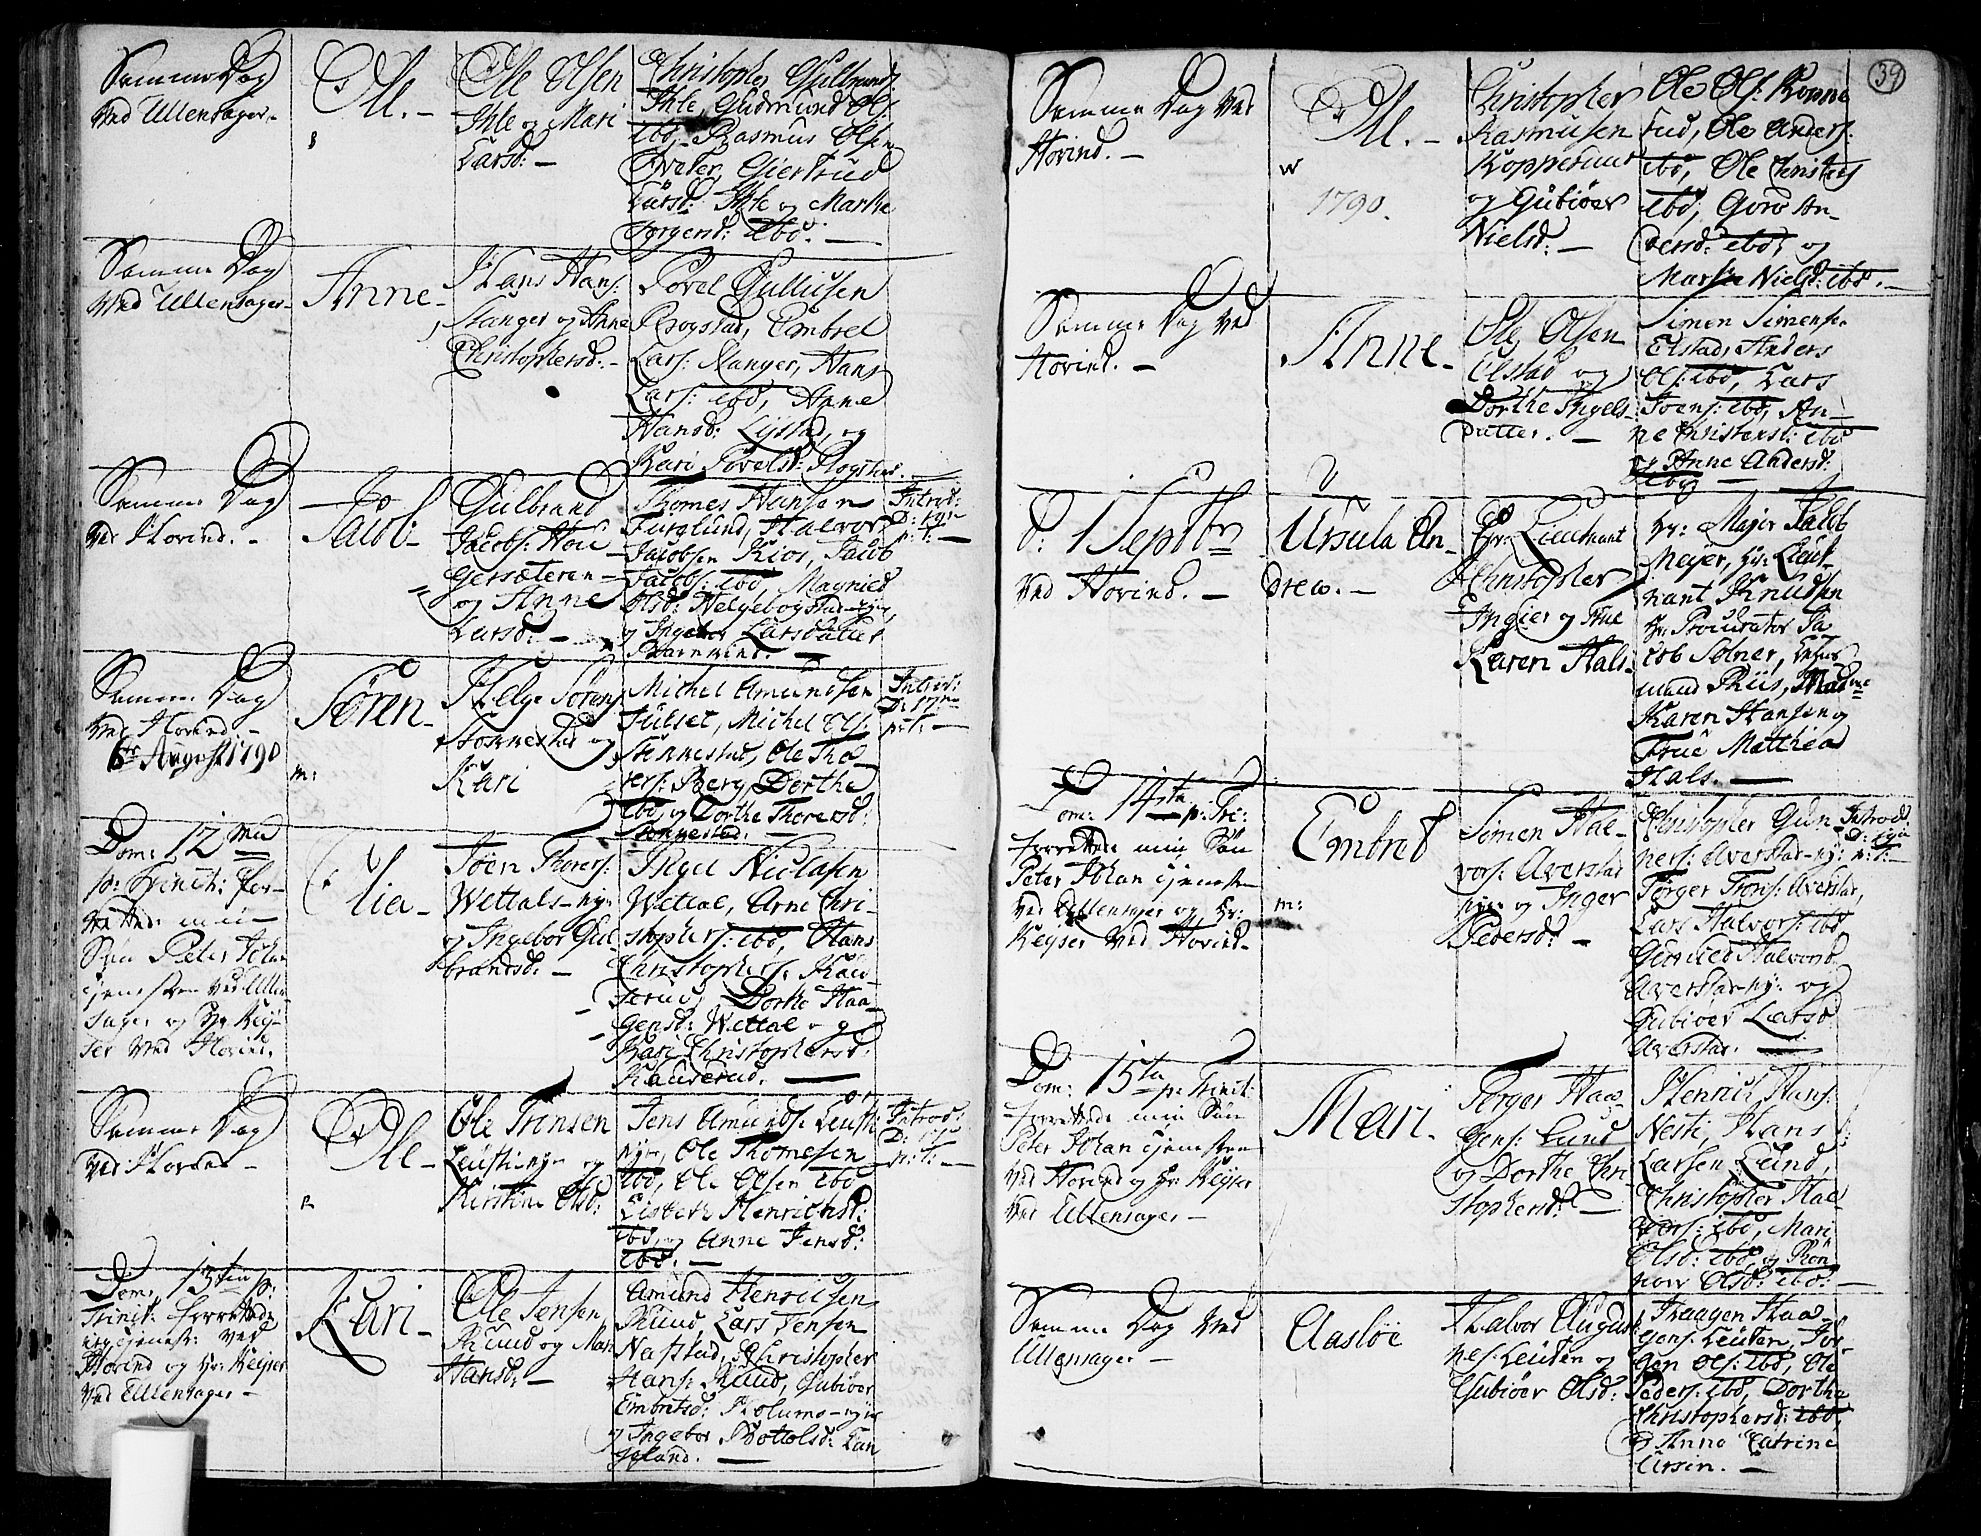 Samme Dag
ved Ullensager.
Ole. -
Ole Olsen
Ihle og Mari
Larsd: -
Christopher Gulbrands:
Ihle, Gudmund Ols:
ibd, Rasmus Olsen
Giertrud
Larsd: Ihle og Marthe
Jørgensd: ibd. -
Samme Dag
ved Ullensager -
Anne -
Hans Hans:
Stanger og Anne
Christophersd. -
Povel Gullicsen
Rogstad, Embret
Lars: Stanger, Hans
Lars: ibd, Anne
Hansd: Lystad, og
Kari Povelsd: Rogstad.
Samme Dag
ved Hovind. -
Jacob -
Gulbrand
Jacobs: Hou
gersæteren -
og Anne
Larsd: -
Thomes Hansen
Furglund, Halvor
Jacobsen Kios, Jacob
Jacobs: ibd, Magnild
Olsd: Helgebogstad-eje,
og Ingebor Larsdatter
-
Introd:
D: 19de
p: t: -
Samme Dag
ved Hovind. -
6te August 1790
Søren -
m:
Helge Sørens:
Stonnestad og
Kari
Michel Amundsen
Julset, Michel Ols:
Stonnestad, Ole Tho
rers: Berg, Dorthe
ibd, og Dorthe Thorersd:
Stonnestad. -
Introd:
D: 17de
p: t: -
Dom: 12 ma
p: Trinit: for-
rettede min
Søn Peter Johan
tjenesten ved Ullen
sager og Hr. Keÿ-
ser ved Hovind.
Elia -
Joen Thorers:
Wettals-ny:
og Ingebor Gul
brandsd: -
Inger Niclasen
Wettal, Arne Chri-
stophers: ibd, Hans
Christophers: Kaus
serud, Dorthe Haa
gensd: Wettal - og
Kari Christophersd:
Kauserud. -
Samme Dag
ved Hovind -
Ole -
Ole Tronsen
Leustinye og
Kirstine Olsd:
Jens Amunds: Leusti
nye, Ole Thomesen
ibd, Ole Olsen ibd
Lisbeth Henrichsd:
ibd, og Anne Jensd:
ibd. -
Introd:
D:
p: t: -
Dom: 13ten p:
Trinit: forrettede
jeg tjenest: ved
Hovind og Hr: Keÿser
ved Ullensager -
Kari -
Ole Jensen
Ruud og Mari
Hansd: -
Amund Henricsen
Ruud Lars Jensen
Nafstad, Christopher
Hans: Ruud, Gubiøer
Embretsd: Holums-eje
og Ingebor Bottolsd: Lan
geland. -
39
Samme Dag ved
Hovind. -
Ole. -
1790.
Christopher
Rasmusen
Kopperud
og Gubiøer
Nielsd: -
Ole Ols: Koppe
rud, Ole Anders:
ibd, Ole Christens
ibd, Goro An-
dersd: ibd, og
Marthe Nielsd: ibd. -
Samme Dag ved
Hovind. -
Anne -
Ole Olsen
Elstad og
Dorthe Ingels-
datter. -
Simen Simense
Elstad, Anders
Ols: ibd, Lars
Joens: ibd, An-
ne Christensd: ibd
og Anne Andersd:
ibd -
d: 1 Septbr
ved Hovind. -
Ursula An-
drea. -
Hr: Lieutnant
Christopher
Engier og Frue
Karen Hals
Hr: Major Jacob
Meyer, Hr: Lieut-
nant Knudsen
Hr: Procurator Ja
cob Sølner,
mund Riis, Madme
Karen Hansen og
Frue Matthia
Hals. -
Dom: 14ta p: Tri:
forrettede min Søn
Peter Johan tjenesten
ved Ullensager og Hr:
Keÿser ved Hovind -
Embret
m:
Simen Hal-
vors: Averstad
nye og Inger
Pedersd: -
Christopher Gun
ners: Averstad-ny:
Jørger Trons: Averstad,
Lars Halvors: ibd,
Gunild Halvorsd:
Averstad-ny: og
Gubiøer Larsd
Averstad. -
Introd:
D: 19de
p: t: -
Dom: 15ta p: Trinit:
forrettede min Søn
Peter Johan tjenesten
ved Hovind og Hr: Keÿser
ved Ullensager -
Mari.
Jørger Haa-
gens: Lund
og Dorthe Chri
stophersd: -
Henrich Hans:
Nesti, Hans
Larsen Lund,
Christopher Hal-
vors: ibd, Mari
Olsd: ibd, og Ron
now Olsd: ibd: -
Samme Dag ved
Ullensager -
Aasløe
Halvor August
nes: Leuten og
Gubiøer Olsd:
Haagen Haa
gens: Leuten, Jør
gen Ols: ibd, Ole
Peders: ibd, Dorthe
Christophersd: ibd,
og Anne Catrine
Ursin. -